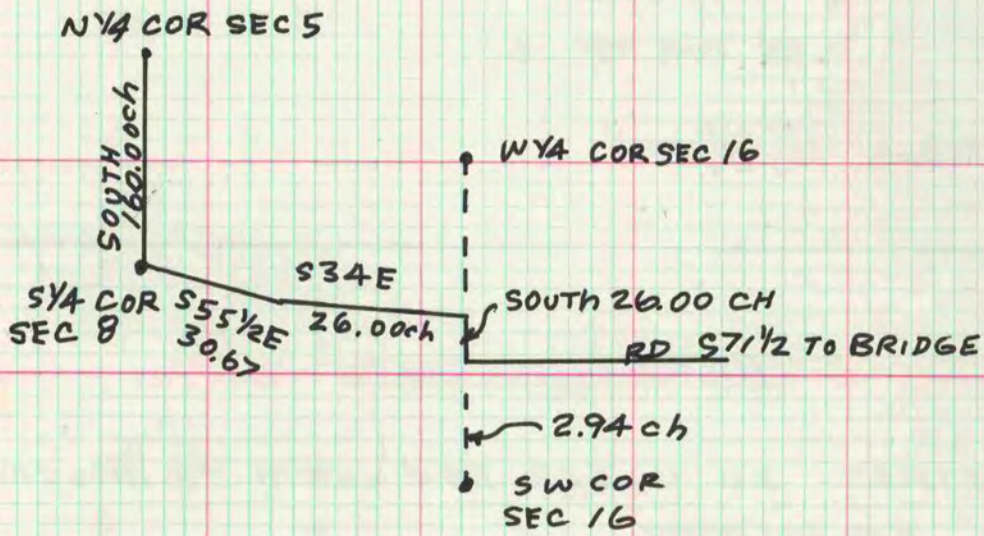 N 1/4 COR SEC 5
SOUTH
160.00ch
W 1/4 COR SEC 16
S 1/4 COR
SEC 8
S55 1/2E
30.67
S34E
26.00ch
SOUTH 26.00 CH
RD S71 1/2 TO BRIDGE
2.94 ch
SW COR
SEC 16